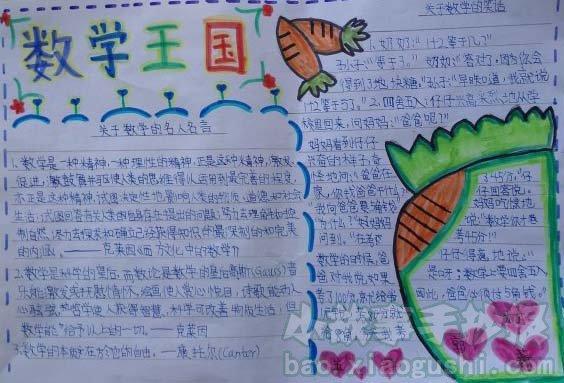 数学王国
关于数学的名人名言
1、数学是一种精神,一种理性的精神。正是这种精神,激发,
促进,鼓舞并驱使人类的思维得以运用到最完善的程度,
亦正是这种精神,试图决定性地影响人类的物质,道德和社会
生活;试图回答有关人类自身存在提出的问题;努力去理解和控
制自然;尽力去探求和确立已经获得知识的最深刻的和完美
的内涵。——克莱因《西方文化中的数学》
2、数学是科学的皇后,而数论是数学的皇后高斯(Gauss)音
乐能激发或抚慰情怀,绘画使人赏心悦目,诗歌能动人
心弦,哲学使人获得智慧,科学可改善物质生活,但
数学能给予以上的一切。——克莱因
3、数学的本质在于它的自由。——康托尔(Cantor)
关于数学的笑话
1、奶奶:“1+2等于几?”
孙子:“等于3。”奶奶:“答对了,因为你会
得到了3块糖。”孙子:“早知道,我就说
1+2等于5了。”2、四舍五入:仔仔兴高采烈地从学
校里回来,问妈妈:“爸爸呢?”
妈妈看到仔仔
兴奋的样子,奇
怪地问:“爸爸在
家,你找爸爸干什么?”
为什么?”妈妈
问到。“在考
数学的时候,爸
爸对我说,如果
考了100分,
3 45分。”仔
仔回答说。
妈妈吃惊地
说:“数学你才
考45分!”
仔仔得意地说。
是呀,数学上要四舍五入
因此,爸爸必须付5角钱。”
baoxiaogushi.com